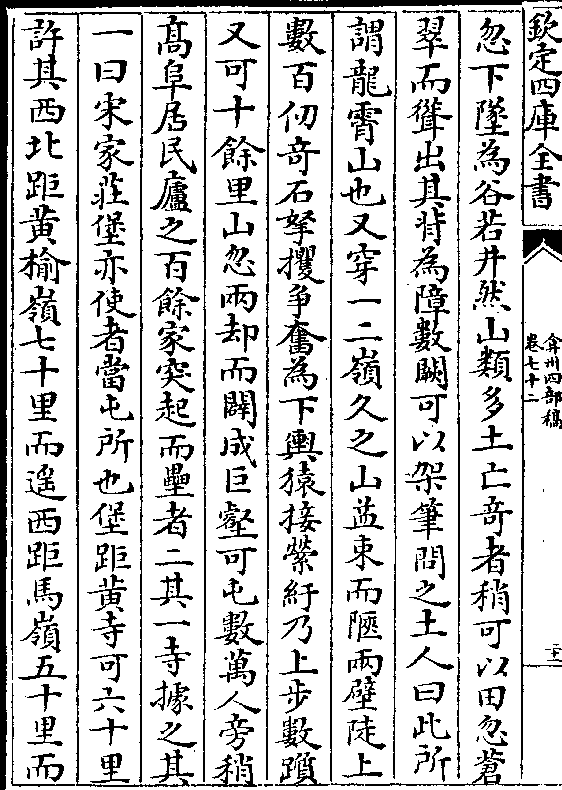 欽定四庫全書
弇州四部稿
卷七十二
二十一
忽下墜為谷若井然山類多土亡奇者稍可以田忽蒼
翠而聳出其背為障數闕可以架筆問之土人曰此所
謂龍霄山也又穿一二嶺久之山益束而陿兩壁陡上
數百仞奇石拏攫爭奮為下輿猿接縈紆乃上步數躓
又可十餘里山忽兩却而闢成巨壑可屯數萬人旁稍
髙阜居民廬之百餘家突起而壘者二其一寺據之其
一曰宋家莊堡亦使者當屯所也堡距黄寺可六十里
許其西北距黄榆嶺七十里而遥西距馬嶺五十里而